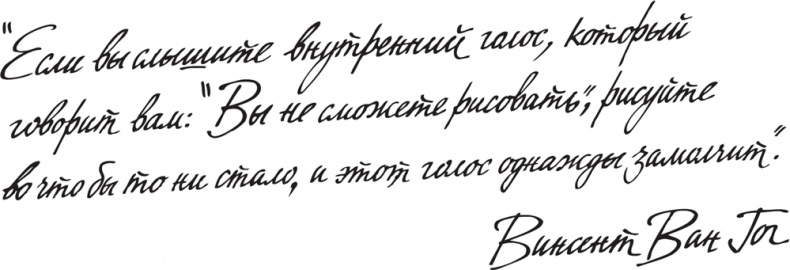 "Если вы слышите внутренний голос, который
говорит вам: "Вы не сможете рисовать", рисуйте
во что бы то ни стало, и этот голос однажды замолчит".
Винсент Ван Гог